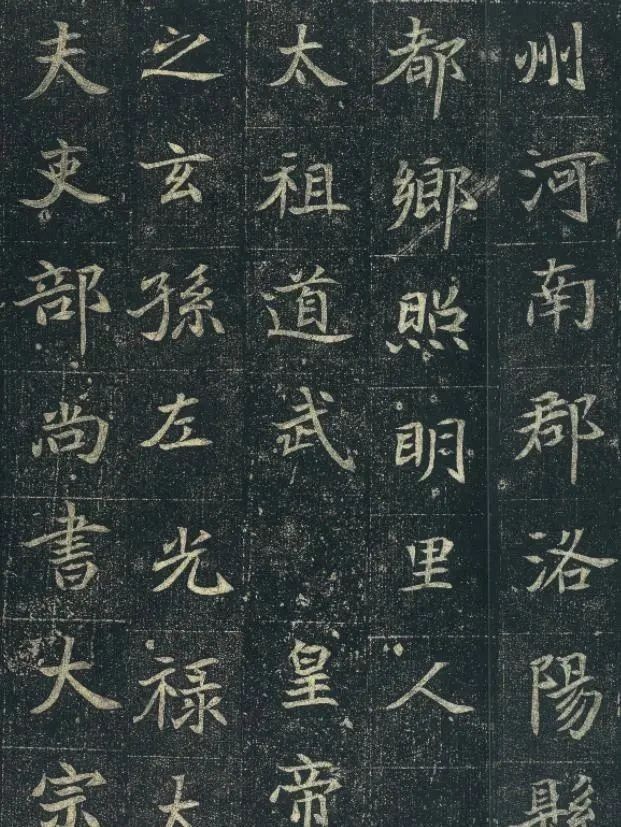 州河南郡洛陽縣
都鄉照明里人
太祖道武皇帝
之玄孫左光祿大
夫吏部尚書大宗